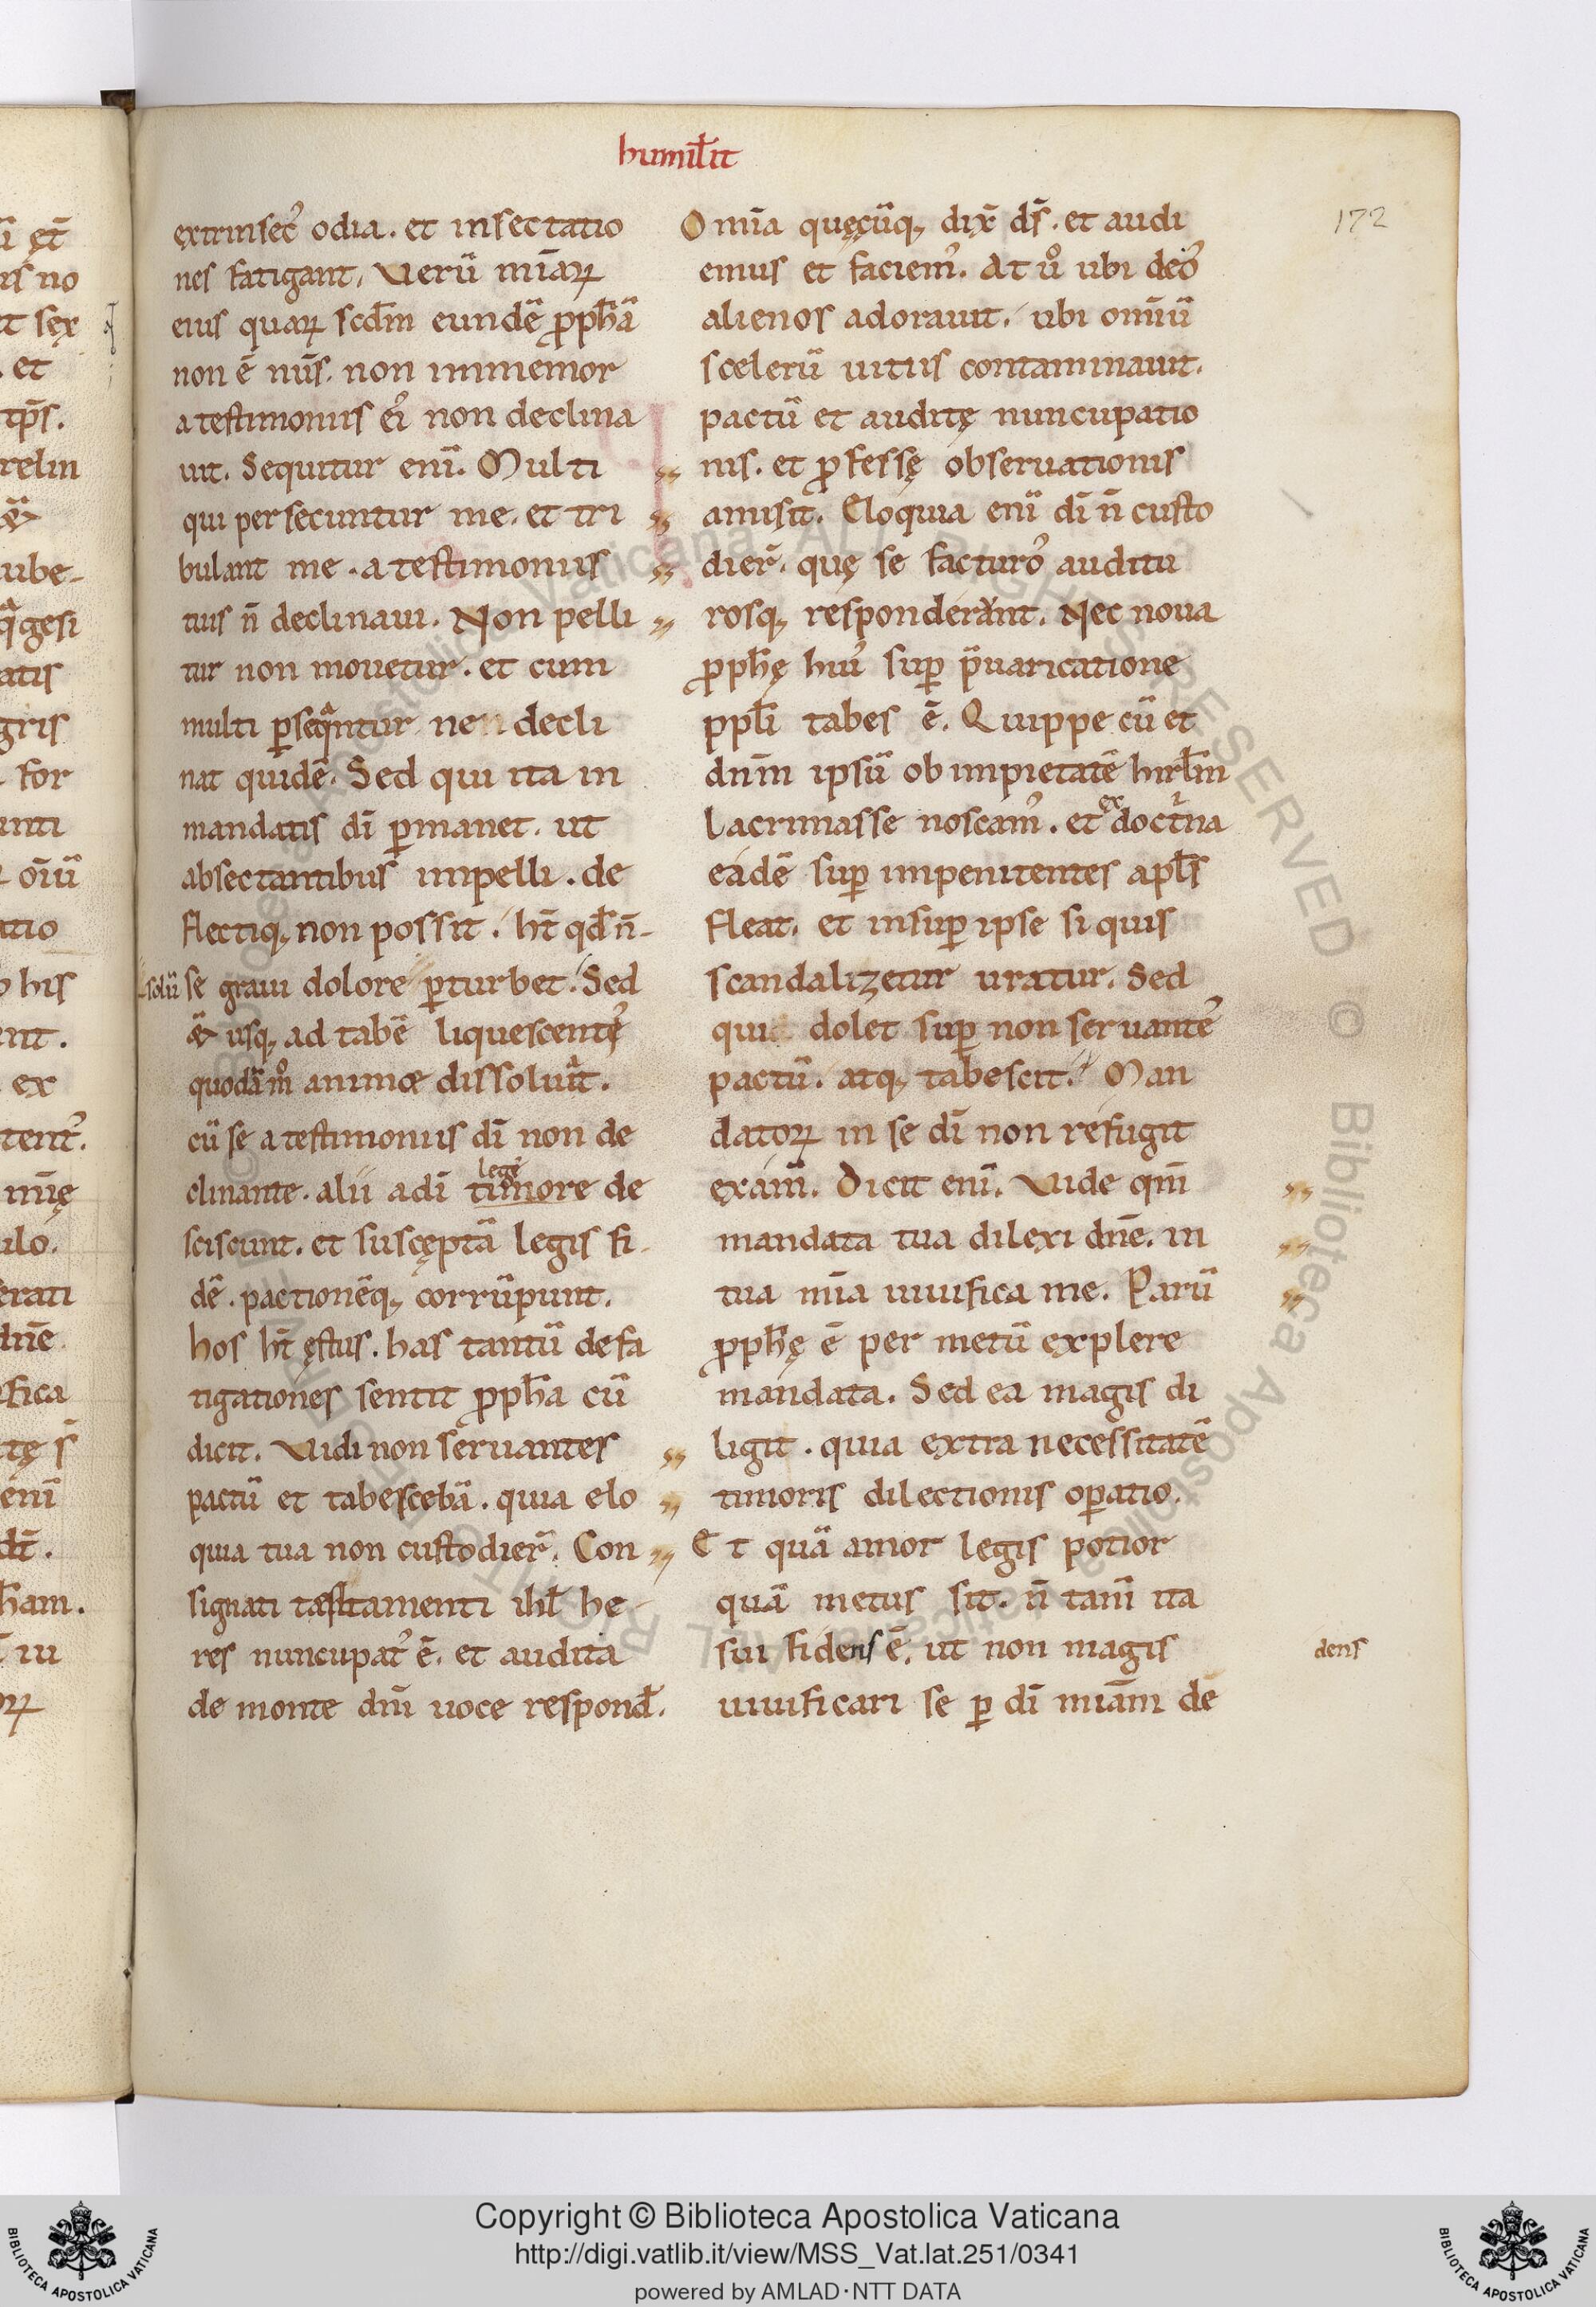 humil̅it
172
extrinsec᾽ odia. et insectatio
nes fatigant, Uerū mīaꝝ
eius quaꝝ scd̅m eundē ꝓph̅ā
non ē nūs. non inmemor
a testimoniis ei᾽ non declina
uit. Sequitur enī. Multi
qui persecuntur me. et tri
bulant me. a testimoniis
tuis n̄ declinaui. Non pelli
tur non mouetur. et cum
multi ꝑseqᷓntur non decli
nat quidē. Sed qui ita in
mandatis dī ꝑmanet. ut
absectantibus impelli. de
flectiq; non possit. ht̄ qd̅ n̄
solū se graui dolore ꝑturbet. Sed
usq; ad tabē liquescent᾽
quodāmº animæ dissoluit.
cū se a testimoniis dī non de
clinante. alii a dī timore de
lege
sciscunt. et suscęptā legis fi
dē. pactionēq; corrūpunt.
hos ht̄ ęstus. has tantū defa
tigationes sentit ꝓph̅a cū
dicit. Uidi non seruantes
pactū et tabescebā. quia elo
quia tua non custodier̄. Con
signati testamenti ihl̅ he
res nuncupat᾽ ē. et audita
de monte dn̄i uoce respond̅.
Omīa quęcūq; dix̄ dn̄s. et audi
emus et faciem᾽. At uº ubi deo᾽
alienos adorauit. ubi omniū
scelerū uitiis contaminauit.
pactū et auditę nuncupatio
nis. et ꝓfessę obseruationis
amisit. Eloquia enī dī n̄ custo
dier̄. quę se facturo᾽ auditu
rosq; responderant. Nec noua
ꝓph̅ę hui᾽ suꝑ p̄uaricatione
ppl̅i tabes ē. Quippe cū et
dn̄m ipsū ob impietatē hirl̅m
lacrimasse noscam᾽. et ex doctⁱna
eadē suꝑ impenitentes apl̅s
fleat. et insuꝑ ipse si quis
scandalizetur uratur. Sed
qui dolet suꝑ non seruante᾽
pactū. atq; tabescit. Man
datoꝝ in se dī non refugit
exam̄. Dicit enī. Uide qm̄
mandata tua dilexi dn̄e. in
tua mīa uiuifica me. Parū
ꝓph̅ę ē per metū explere
mandata. Sed ea magis di
ligit. quia extra necessitatē
timoris dilectionis oꝑatio.
Et quā amor legis potior
quā metus sit. n̄ tam̄ ita
sui fidens ē. ut non magis
dens
uiuificari se ꝑ dī miām de
Copyright © Biblioteca Apostolica Vaticana
http://digi.vatlib.it/view/MSS_Vat.lat.251/0341
powered by AMLAD·NTT DATA
BIBLIOTECA APOSTOLICA VATICANA
BIBLIOTECA APOSTOLICA VATICANA